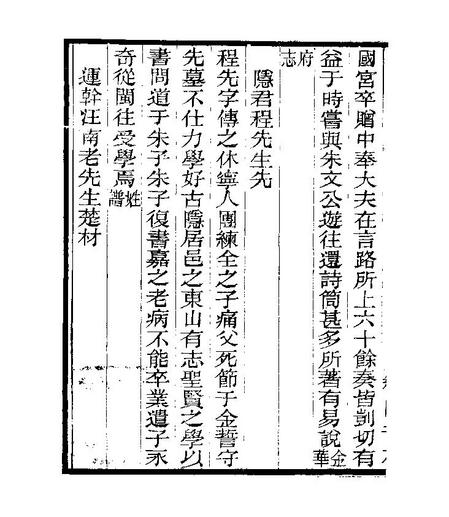 國宮卒贈中奉大夫在言路所上六十餘奏皆剴切有
益于時嘗與朱文公遊往還詩筒甚多所著有易說金華
府志
隱君程先生先
程先字傳之休寧人團練全之子痛父死節于金誓守
先墓不仕力學好古隱居邑之東山有志聖賢之學以
書問道于朱子朱子復書嘉之老病不能卒業遣子永
奇從閩往受學焉姓譜
運幹汪南老先生楚材